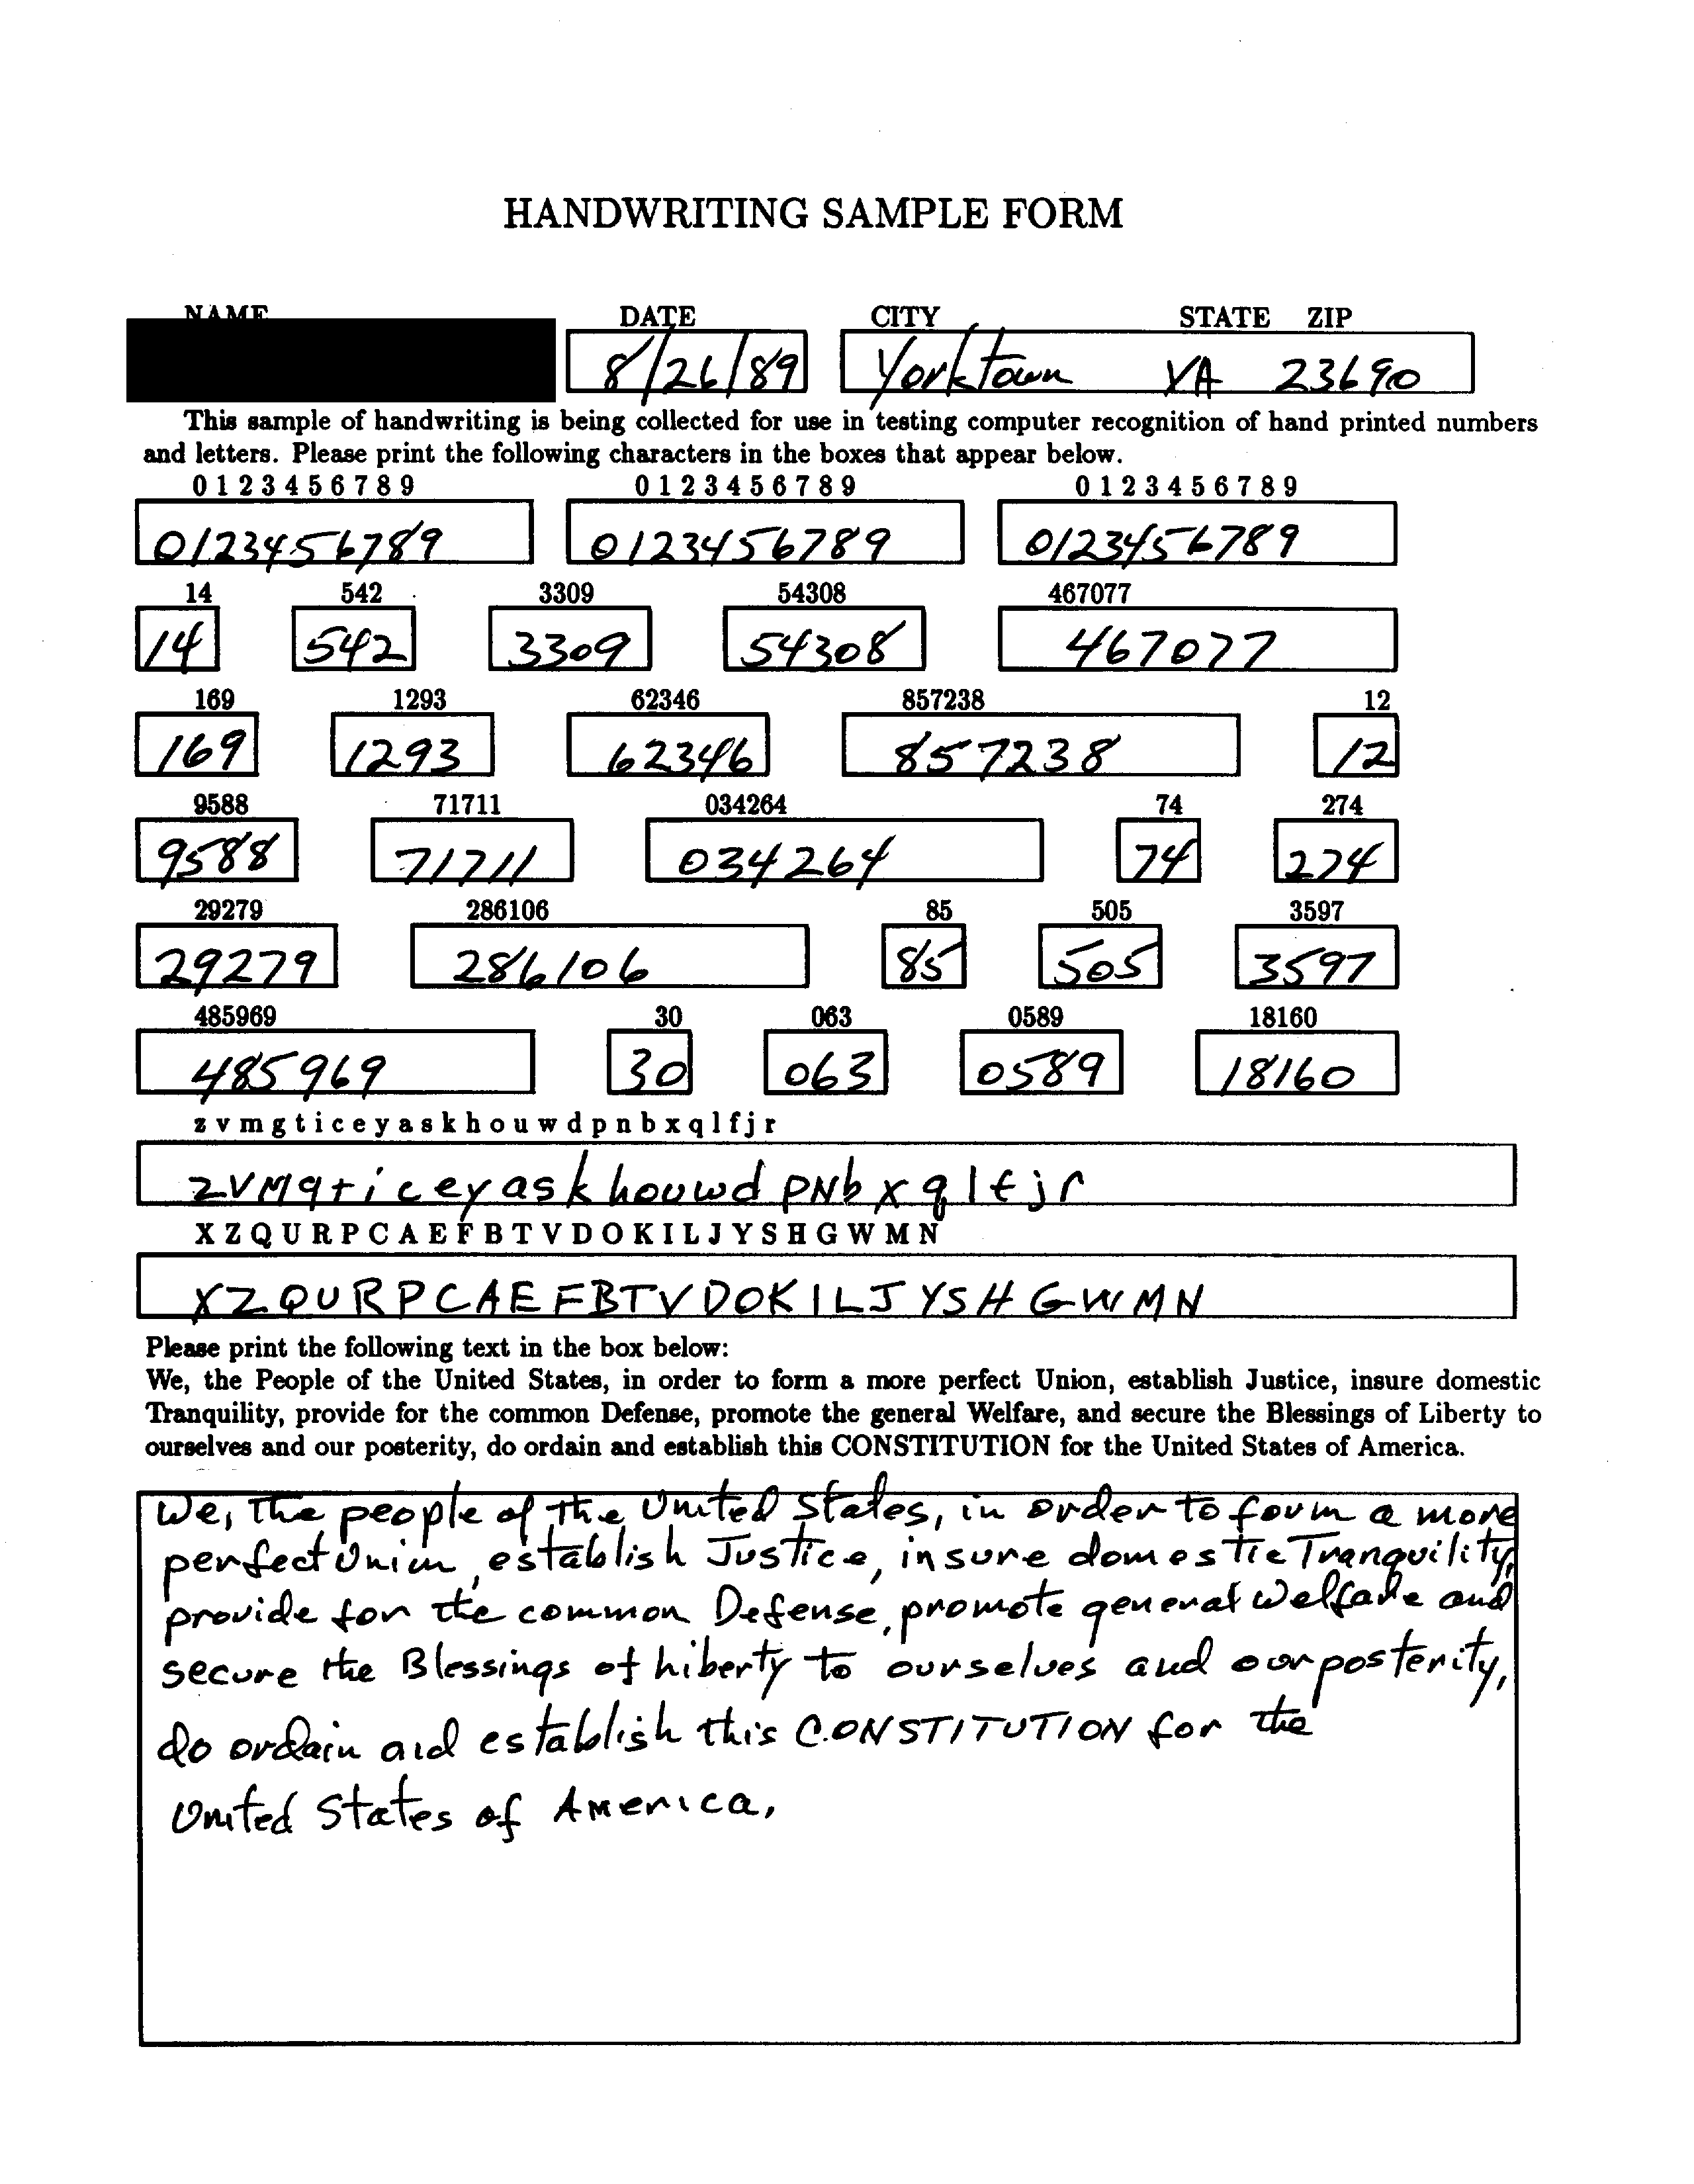 HANDWRITING SAMPLE FORM
NAME DATE CITY STATE ZIP
8/26/89 Yorktown VA 23690
This sample of handwriting is being collected for use in testing computer recognition of hand printed numbers
and letters. Please print the following characters in the boxes that appear below.
0 1 2 3 4 5 6 7 8 9 0 1 2 3 4 5 6 7 8 9 0 1 2 3 4 5 6 7 8 9
0123456789 0123456789 0123456789
14 542 3309 54308 467077
14 542 3309 54308 467077
169 1293 62346 857238 12
169 1293 62346 857238 12
9588 71711 034264 74 274
9588 71711 034264 74 274
29279 286106 85 505 3597
29279 286106 85 505 3597
485969 30 063 0589 18160
485969 30 063 0589 18160
z v m g t i c e y a s k h o u w d p n b x q l f j r
zvMgticeyaskhouwdpNbxqlfjr
X Z Q U R P C A E F B T V D O K I L J Y S H G W M N
XZQURPCAEFBTVDOKILJYSHGWMN
Please print the following text in the box below:
We, the People of the United States, in order to form a more perfect Union, establish Justice, insure domestic
Tranquility, provide for the common Defense, promote the general Welfare, and secure the Blessings of Liberty to
ourselves and our posterity, do ordain and establish this CONSTITUTION for the United States of America.
We, the people of the United States, in order to form a more
perfect Union, establish Justice, insure domestic Tranquility,
provide for the common Defense, promote general Welfare and
secure the Blessings of Liberty to ourselves and our posterity,
do ordain and establish this CONSTITUTION for the
United States of America.